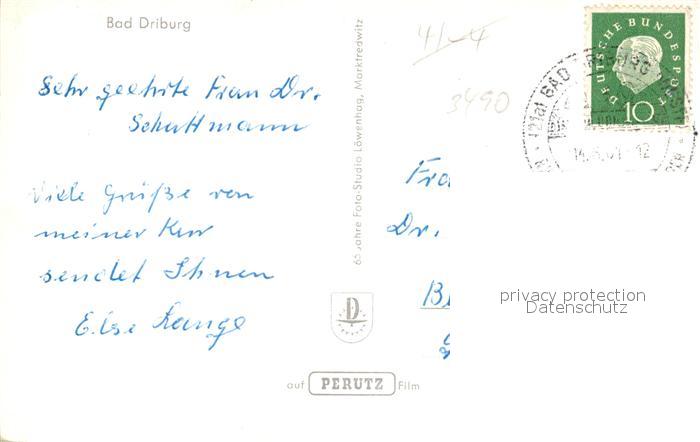 Bad Driburg
Sehr geehrte Frau Dr.
Schuttmann
Viele Grüße von
meiner Kur
sendet Ihnen
Else Lange
65 Jahre Foto-Studio Löwenhag, Marktredwitz
D
auf PERUTZ Film
3490
DEUTSCHE BUNDESPOST
10
(21a) BAD
Fra
Dr.
privacy protection
Datenschutz